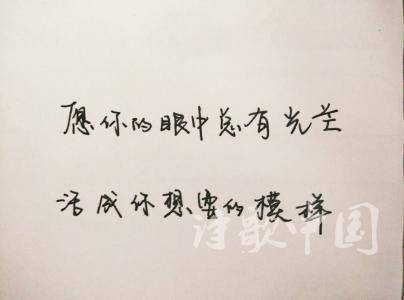 愿你的眼中总有光芒
活成你想要的模样
诗歌中国